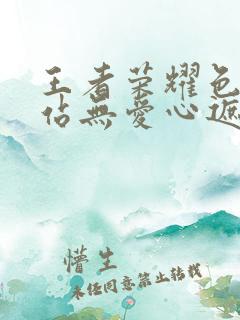 王者荣耀色
佔無愛心遮
懵生
未经同意禁止转载